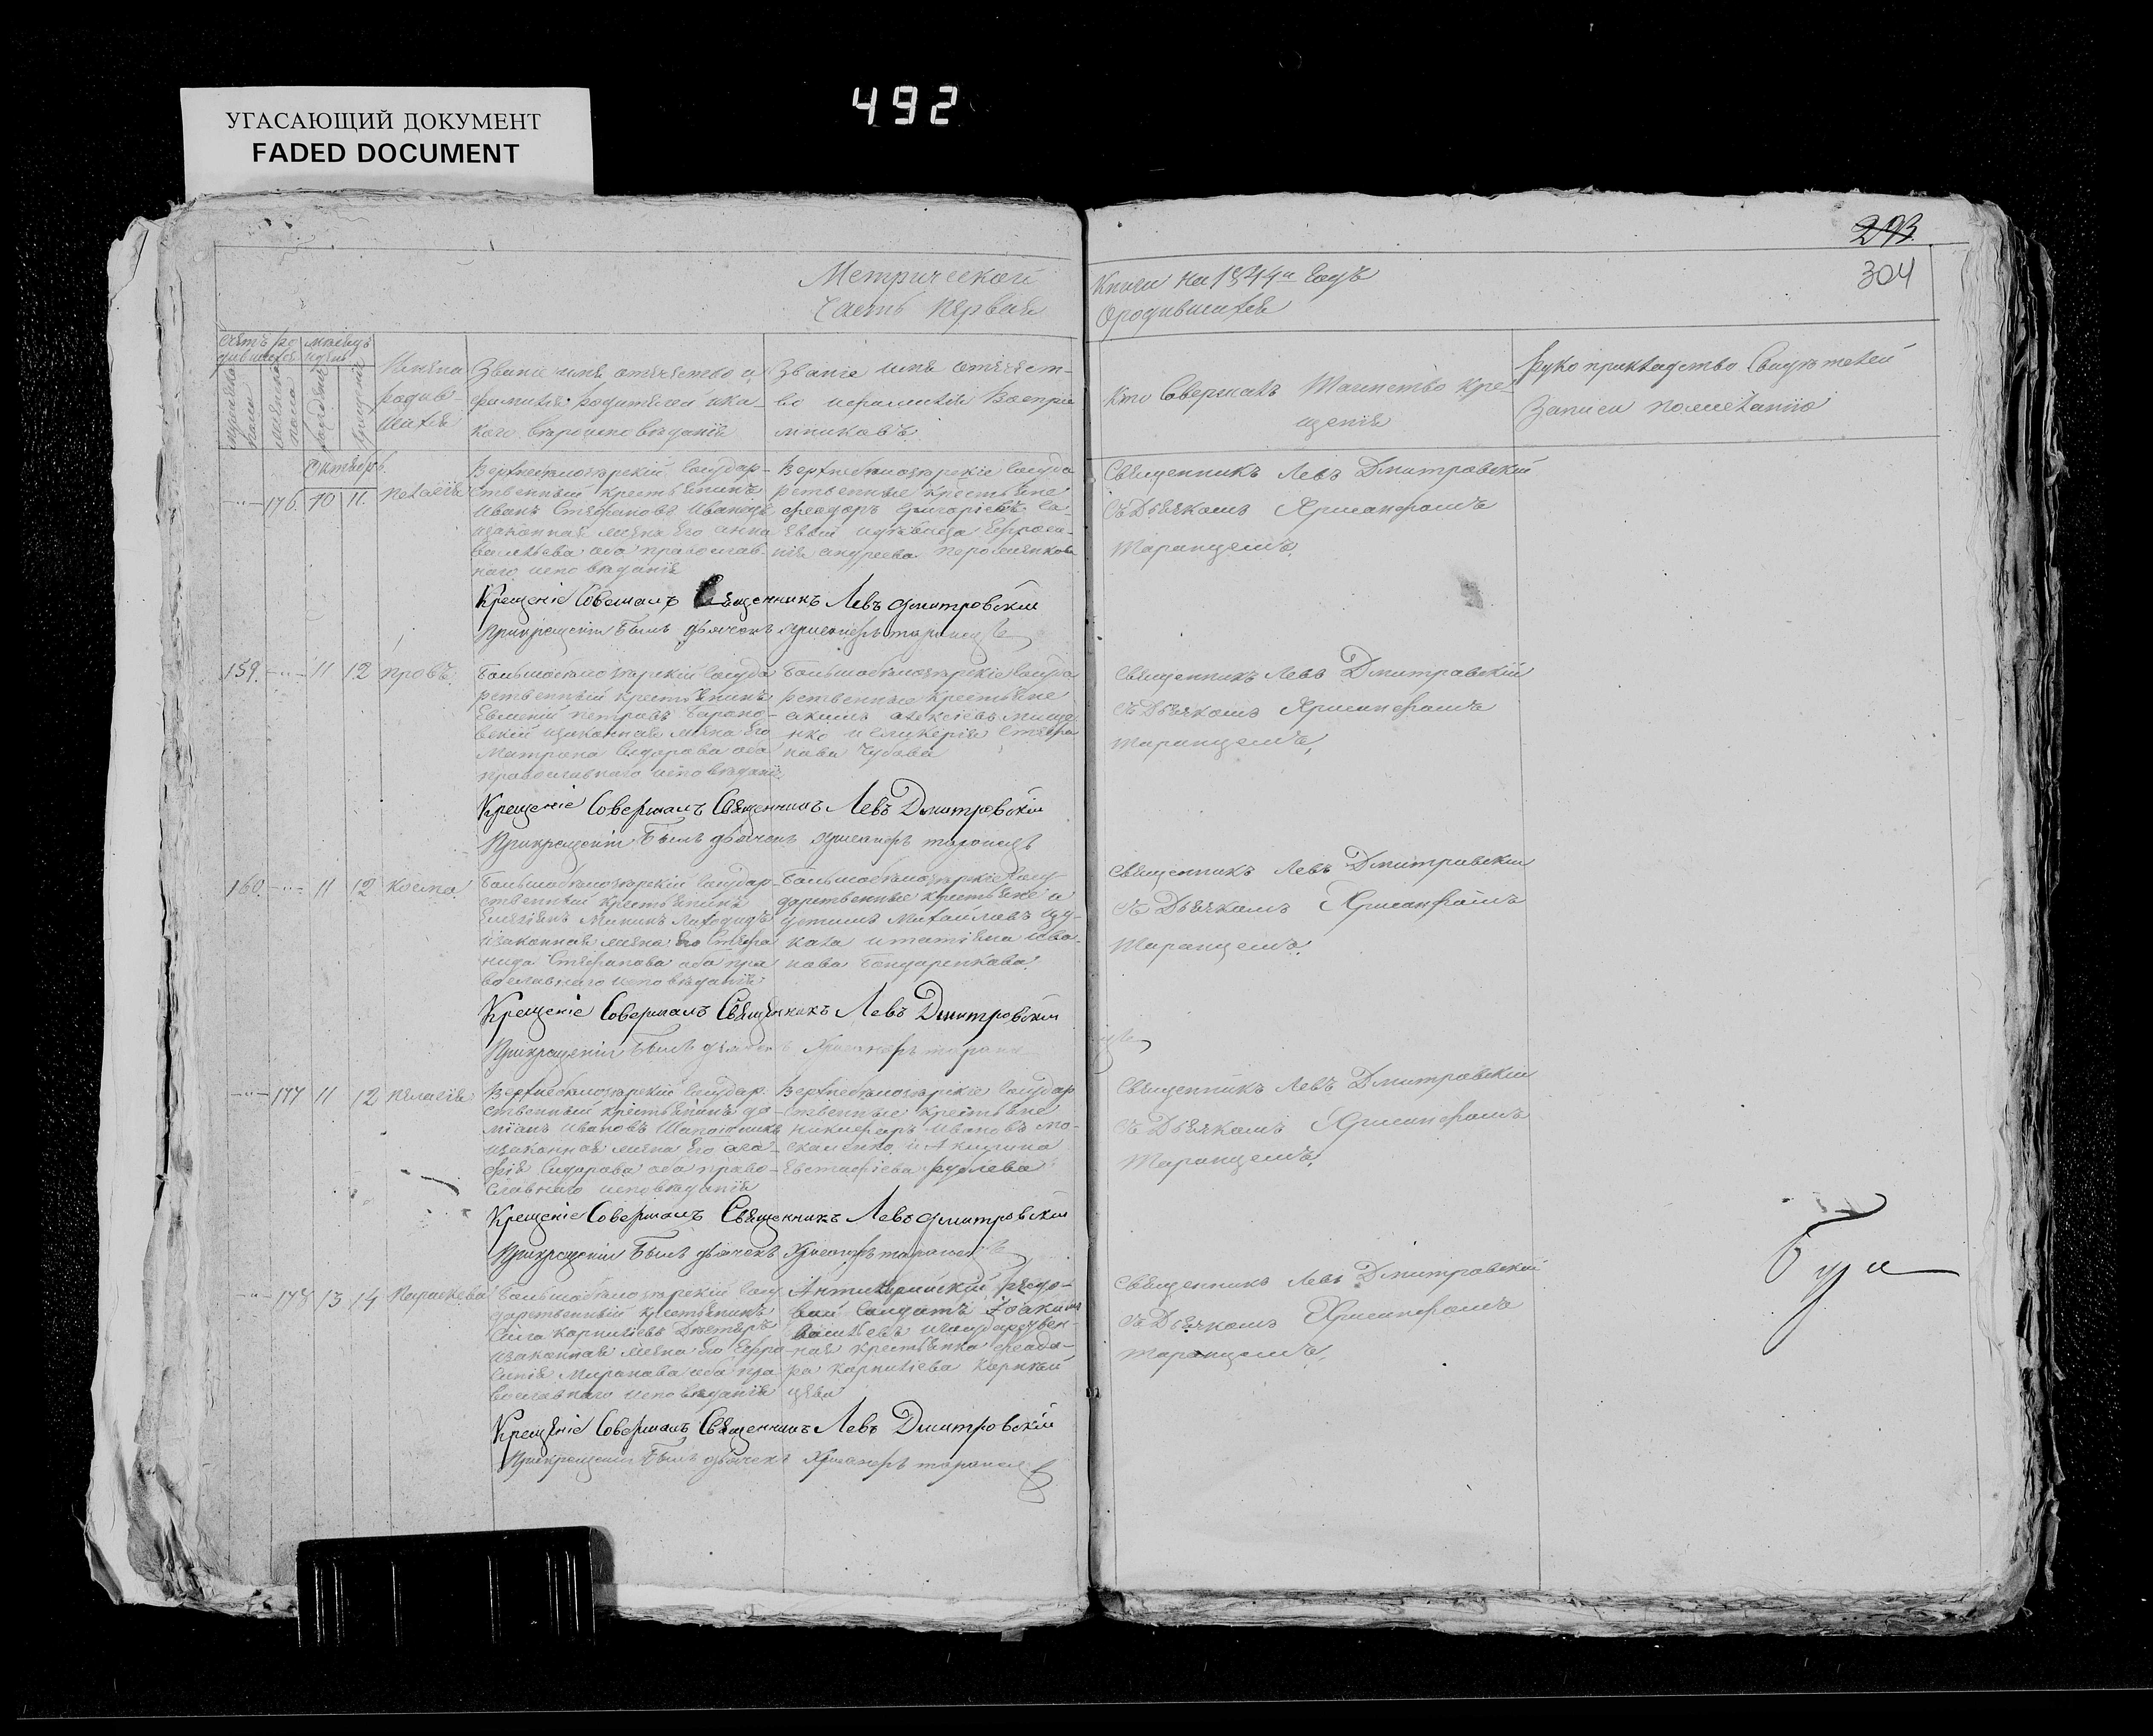 492
УГАСАЮЩИЙ ДОКУМЕНТ
FADED DOCUMENT
293
304
Метрической
Часть первая
книги на 1844й годъ
О родившихся
Счетъ ро
дившихся
мѣсяцъ
и день
Имена
родив-
шихся
Званіе имя отечество и
фамилія родителей и ка-
кого вѣроисповѣданія
Званіе имя отечест-
во и фамилія Воспрі
мниковъ
Кто Совершалъ Таинство Кре-
щенія
Руко прикладство Свидѣтелей
Записи по желанію
Октябрь
176. 10 11.
Верхнебѣлозерскій Государ-
ственный крестьянинъ
Иванъ Стефановъ
и законная жена Его Анна
Васильева оба православ-
наго исповѣданія
Верхнебѣлозерскіе Госуда
рственные крестьяне
Феодоръ Григоріевъ
Андреева
Священникъ Левъ Дмитровскій
съ Дьячкомъ Хрисанфомъ
Таранцемъ.
Крещеніе Совершалъ Священникъ Левъ Дмитровскій
При крещеніи Былъ дьячекъ Хрисанфъ таранецъ
159. 11 12 Провъ.
Большебѣлозерскій Госуда
рственный крестьянинъ
Евмений Петровъ
и законная жена Его
Матрона Сидорова оба
православнаго исповѣданія
Большебѣлозерскіе Госуда
рственные крестьяне
Акимъ Алексіевъ
и Гликерія Стефа
нова Чубова
Священникъ Левъ Дмитровскій
съ Дьячкомъ Хрисанфомъ
Таранцемъ.
Крещеніе Совершалъ Священникъ Левъ Дмитровскій
При крещеніи Былъ дьячекъ Хрисанфъ таранецъ
160. 11 12 Косма.
Большебѣлозерскій Государ-
ственный крестьянинъ
и законная жена Его Стефа
нида Стефанова оба пра
вославнаго исповѣданія
Большебѣлозерскіе Госу
дарственные крестьяне
Михайловъ
и Татіяна Ива
нова Бондаренкова
Священникъ Левъ Дмитровскій
съ Дьячкомъ Хрисанфомъ
Таранцемъ.
Крещеніе Совершалъ Священникъ Левъ Дмитровскій
При крещеніи Былъ дьячекъ Хрисанфъ таране
цъ
177 11 12 Пелагія
Верхнебѣлозерскій Государ
ственный крестьянинъ Да
міанъ Ивановъ Шаповаликъ
и законная жена Его Ага-
фія Сидорова оба право-
славнаго исповѣданія
Верхнебѣлозерскіе Государ
ственные крестьяне
Никифоръ Ивановъ Мо-
скаленко и Акилина
Евстафіева Рулева
Священникъ Левъ Дмитровскій
съ Дьячкомъ Хрисанфомъ
Таранцемъ.
Крещеніе Совершалъ Священникъ Левъ Дмитровскій
При крещеніи Былъ дьячекъ Хрисанфъ таранецъ
178 13 14 Параскева
Большебѣлозерскій Госу
дарственный крестьянинъ
Сила Корниліевъ
и законная жена Его Евфро
синія Миронова оба пра
вославнаго исповѣданія
рядо-
вой Солдатъ Іоакимъ
Васильевъ и Государствен-
ная крестьянка Феодо-
ра Корниліева
Священникъ Левъ Дмитровскій
съ Дьячкомъ Хрисанфомъ
Таранцемъ.
Крещеніе Совершалъ Священникъ Левъ Дмитровскій
При крещеніи Былъ дьячекъ Хрисанфъ таранец